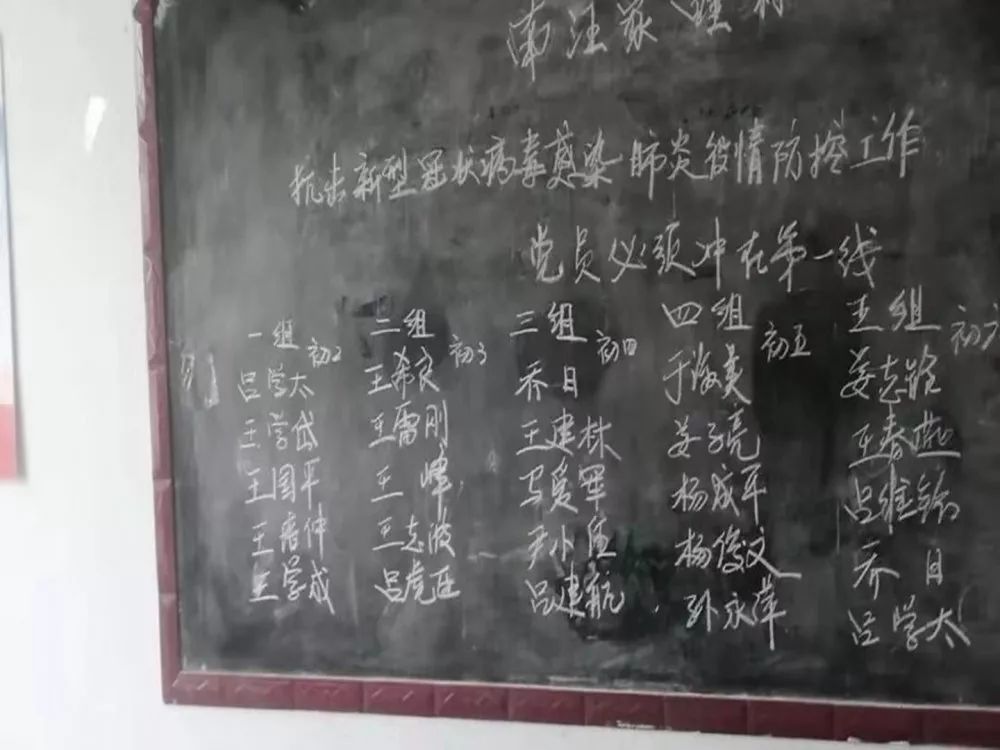 南汪家疃村
抗击新型冠状病毒感染肺炎疫情防控工作
党员必须冲在第一线
一组 初2 二组 初3 三组 初四 四组 初五 五组 初六
吕学太 王希良 乔日 于海英 姜志路
王学岱 王雷刚 王建林 姜子亮 王春燕
王国平 王峰 马爱军 杨成平 吕维
王 仲 王志波 尹小 杨俊文 乔日
王学成 吕虎臣 吕建航 孙永萍 吕学太